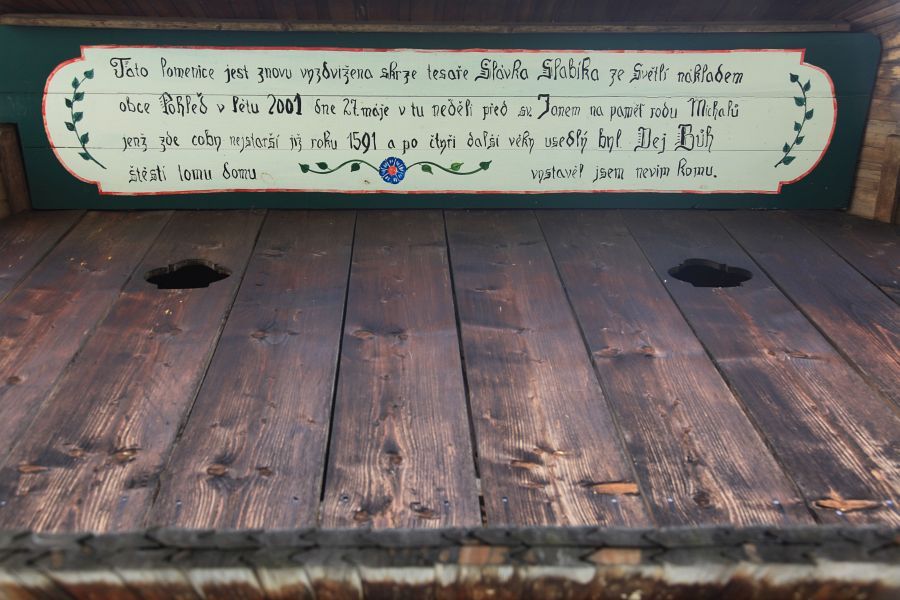 Tato lomenice jest znovu vyzdvižena skrze tesaře Slávka Slabika ze Světlí nákladem
obce Pohleď v létu 2001 dne 27. máje v tu neděli před sv. Janem na paměť rodu Michalů
jenž zde coby nejstarší již roku 1591 a po čtyři další věky usedlý byl. Dej Bůh
štěstí tomu domu vystavěl jsem nevim komu.